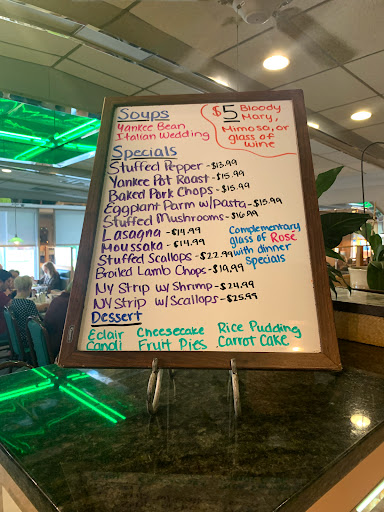 Soups
Yankee Bean
Italian Wedding
$5 Bloody
Mary,
Mimosa, or
glass of
wine
Specials
Stuffed Pepper - $13.99
Yankee Pot Roast - $15.99
Baked Pork Chops - $15.99
Eggplant Parm w/Pasta - $15.99
Stuffed Mushrooms - $16.99
Lasagna - $14.99
Moussaka - $14.99
Stuffed Scallops - $22.99
Broiled Lamb Chops - $19.99
NY Strip w/ Shrimp - $24.99
NY Strip w/ Scallops - $25.99
Complementary
glass of Rosé
with dinner
specials
Dessert
Eclair Cheesecake Rice Pudding
Canoli Fruit Pies Carrot Cake